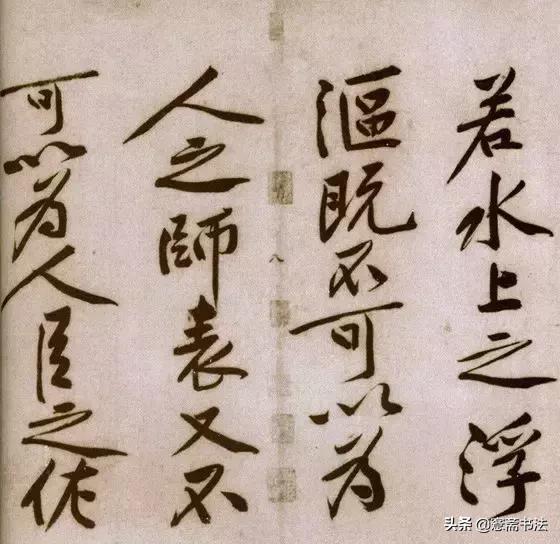 若水上之浮
漚既不可以為
人之師表又不
可以為人臣之佐
头条 @愙斋书法